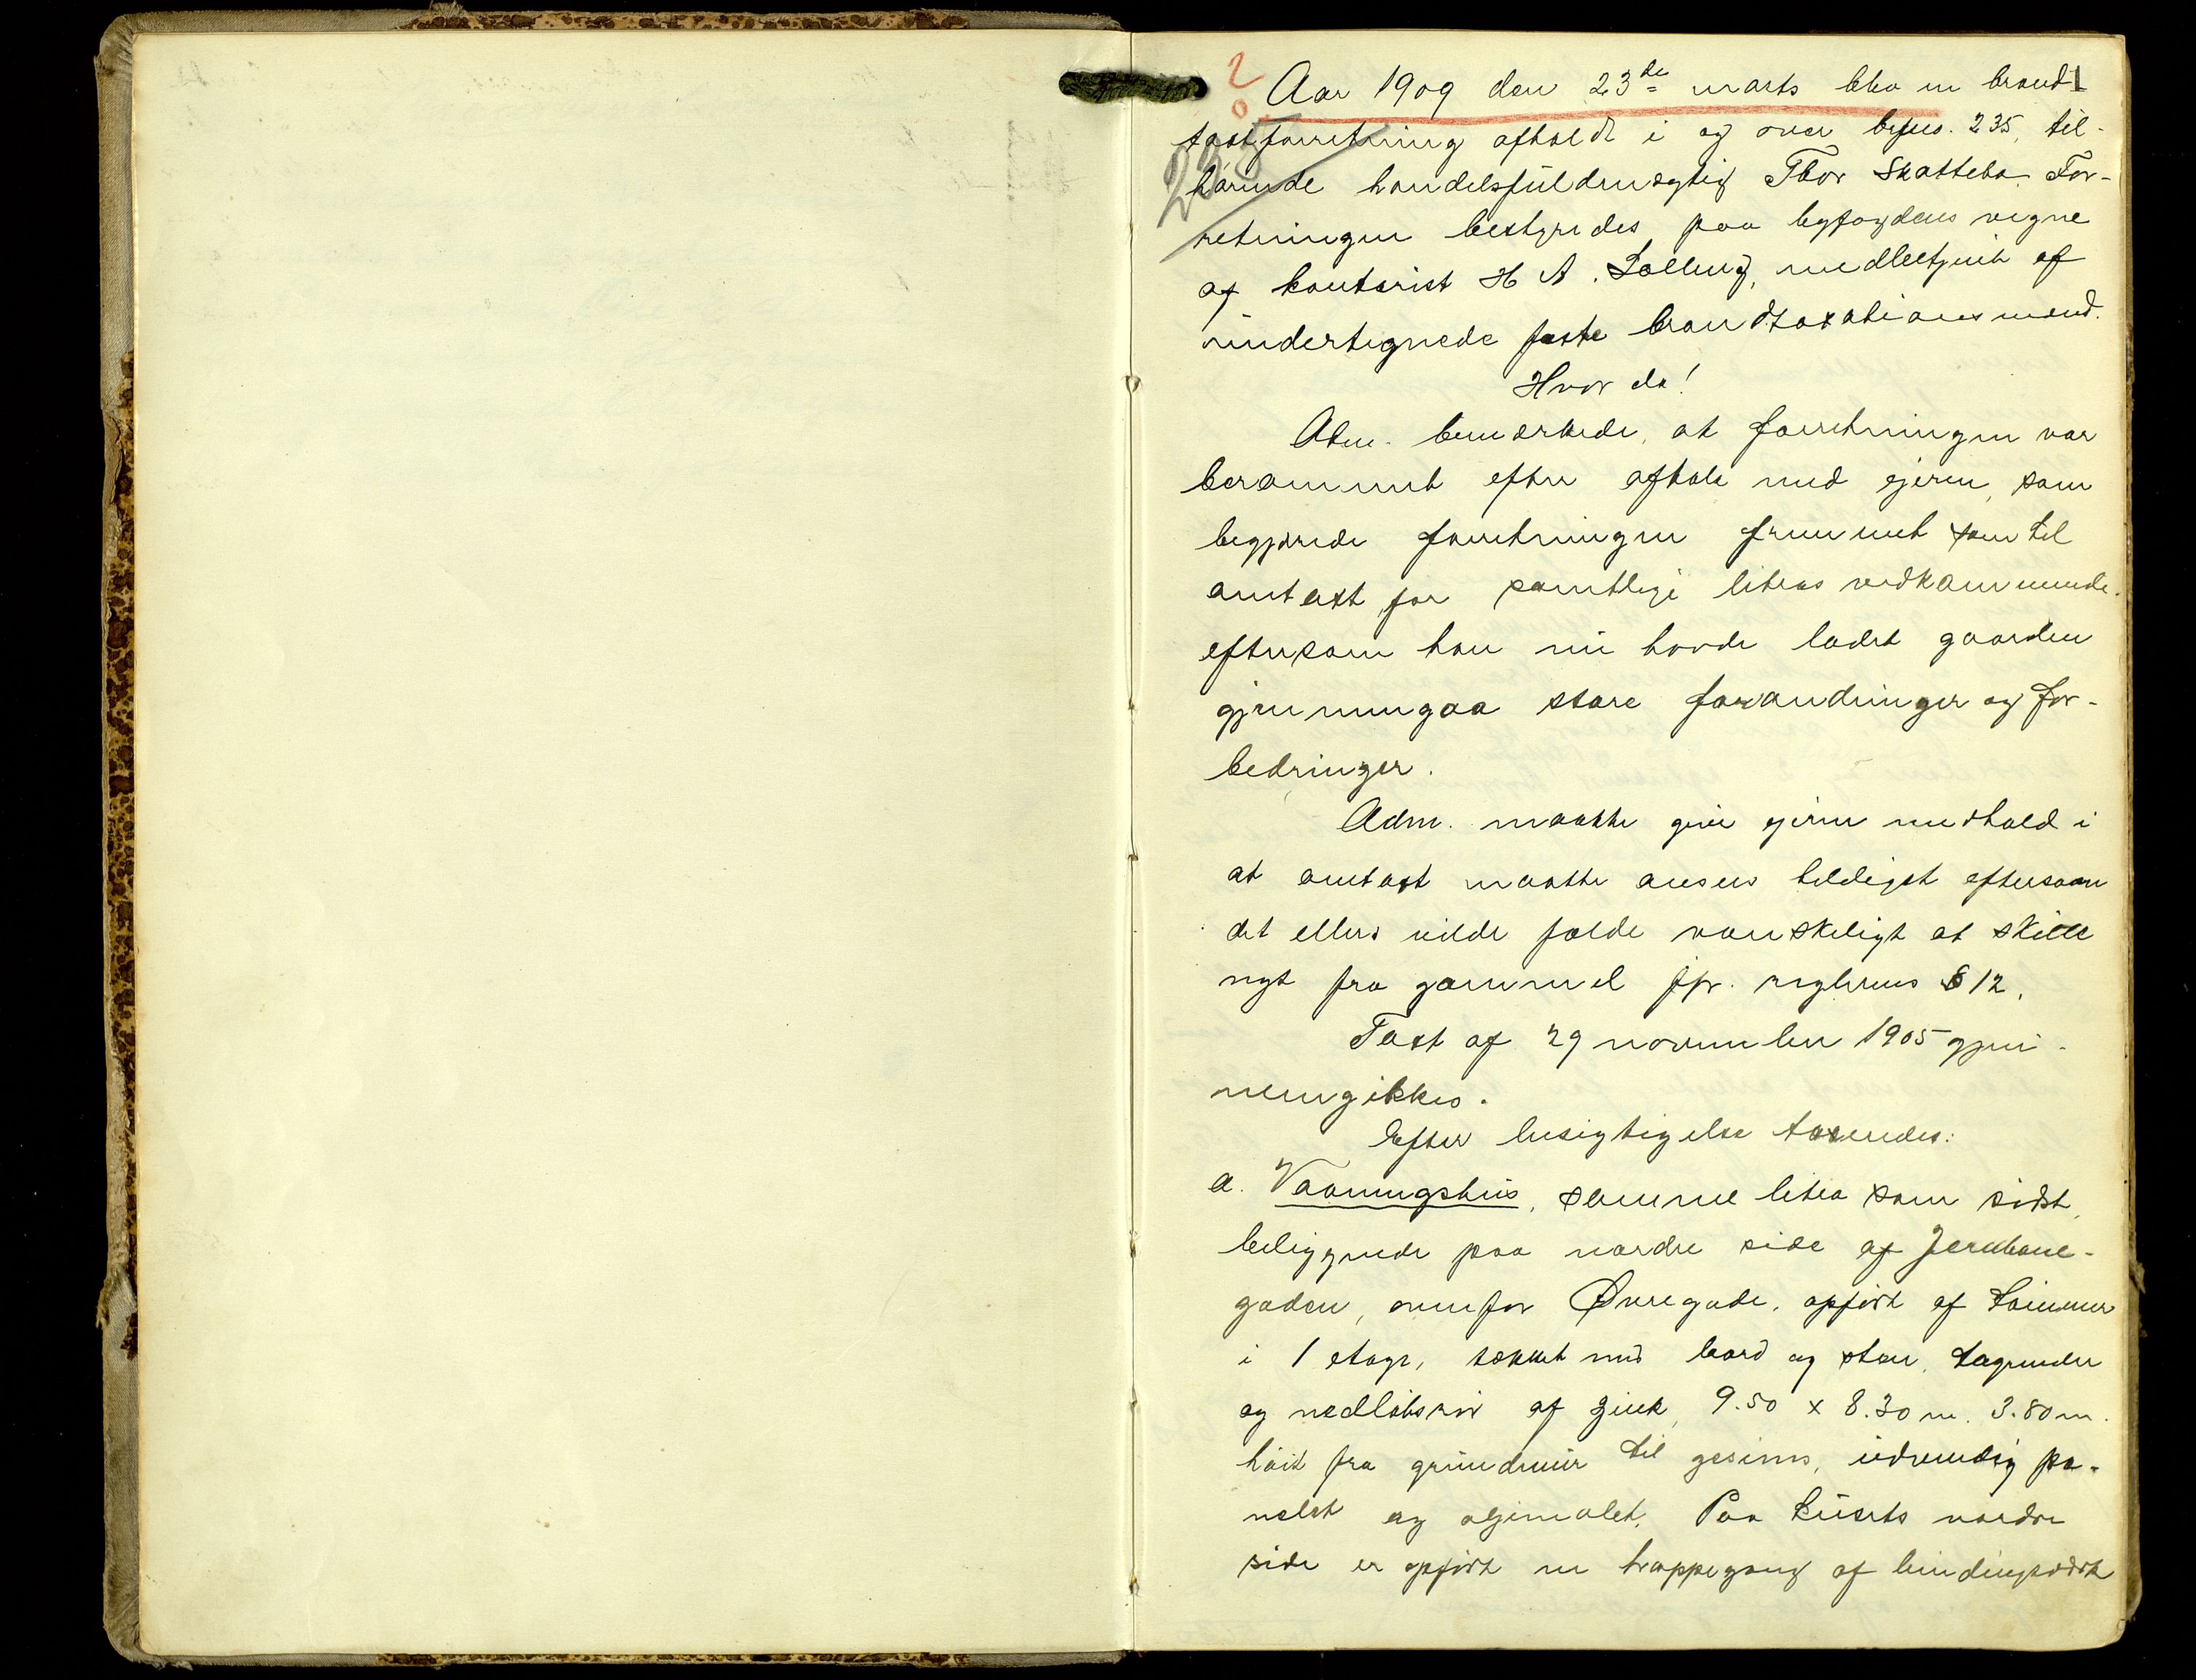 Aar 1909 den 23de marts blev en brand-
taxtforretning afholdt i og over bygns. 235, til-
hørende handelsfuldmægtig Thor Skattebo. For-
retningen bestyredes paa byfogdens vegne
af kontorist H A. Solberg, medbetjent af
undertegnede faste brandtaxationsmænd.
Hvor da!
Adm. bemærkede, at forretningen var
berammet efter aftale med eieren, som
begjærede forretningen fremmet som til
omtaxt for samtlige litras vedkommende.
eftersom han nu havde ladet gaarden
gjennemgaa store forandringer og for-
bedringer.
Adm. maatte give eieren medhold i
at omtaxt maatte ansees heldigst eftersom
det ellers vilde falde vanskeligt at skille
nyt fra gammel jfr. reglernes § 12.
Taxt af 29 november 1905 gjen-
nemgikkes.
Efter besigtigelse taxeredes:
a. Vaaningshus, samme litra som sidst,
beliggende paa nordre side af Jernbane-
gaden, ovenfor Øvregade, opført af tømmer
i 1 etage, tækket med bord og sten, tagrender
og nedløbsrør af zink, 9.50 x 8.30 m. 3.80 m.
høit fra grundmur til gesims, udvendig pa-
nelet og oljemalet. Paa husets nordre
side er opført en trappegang af bindingsværk
235